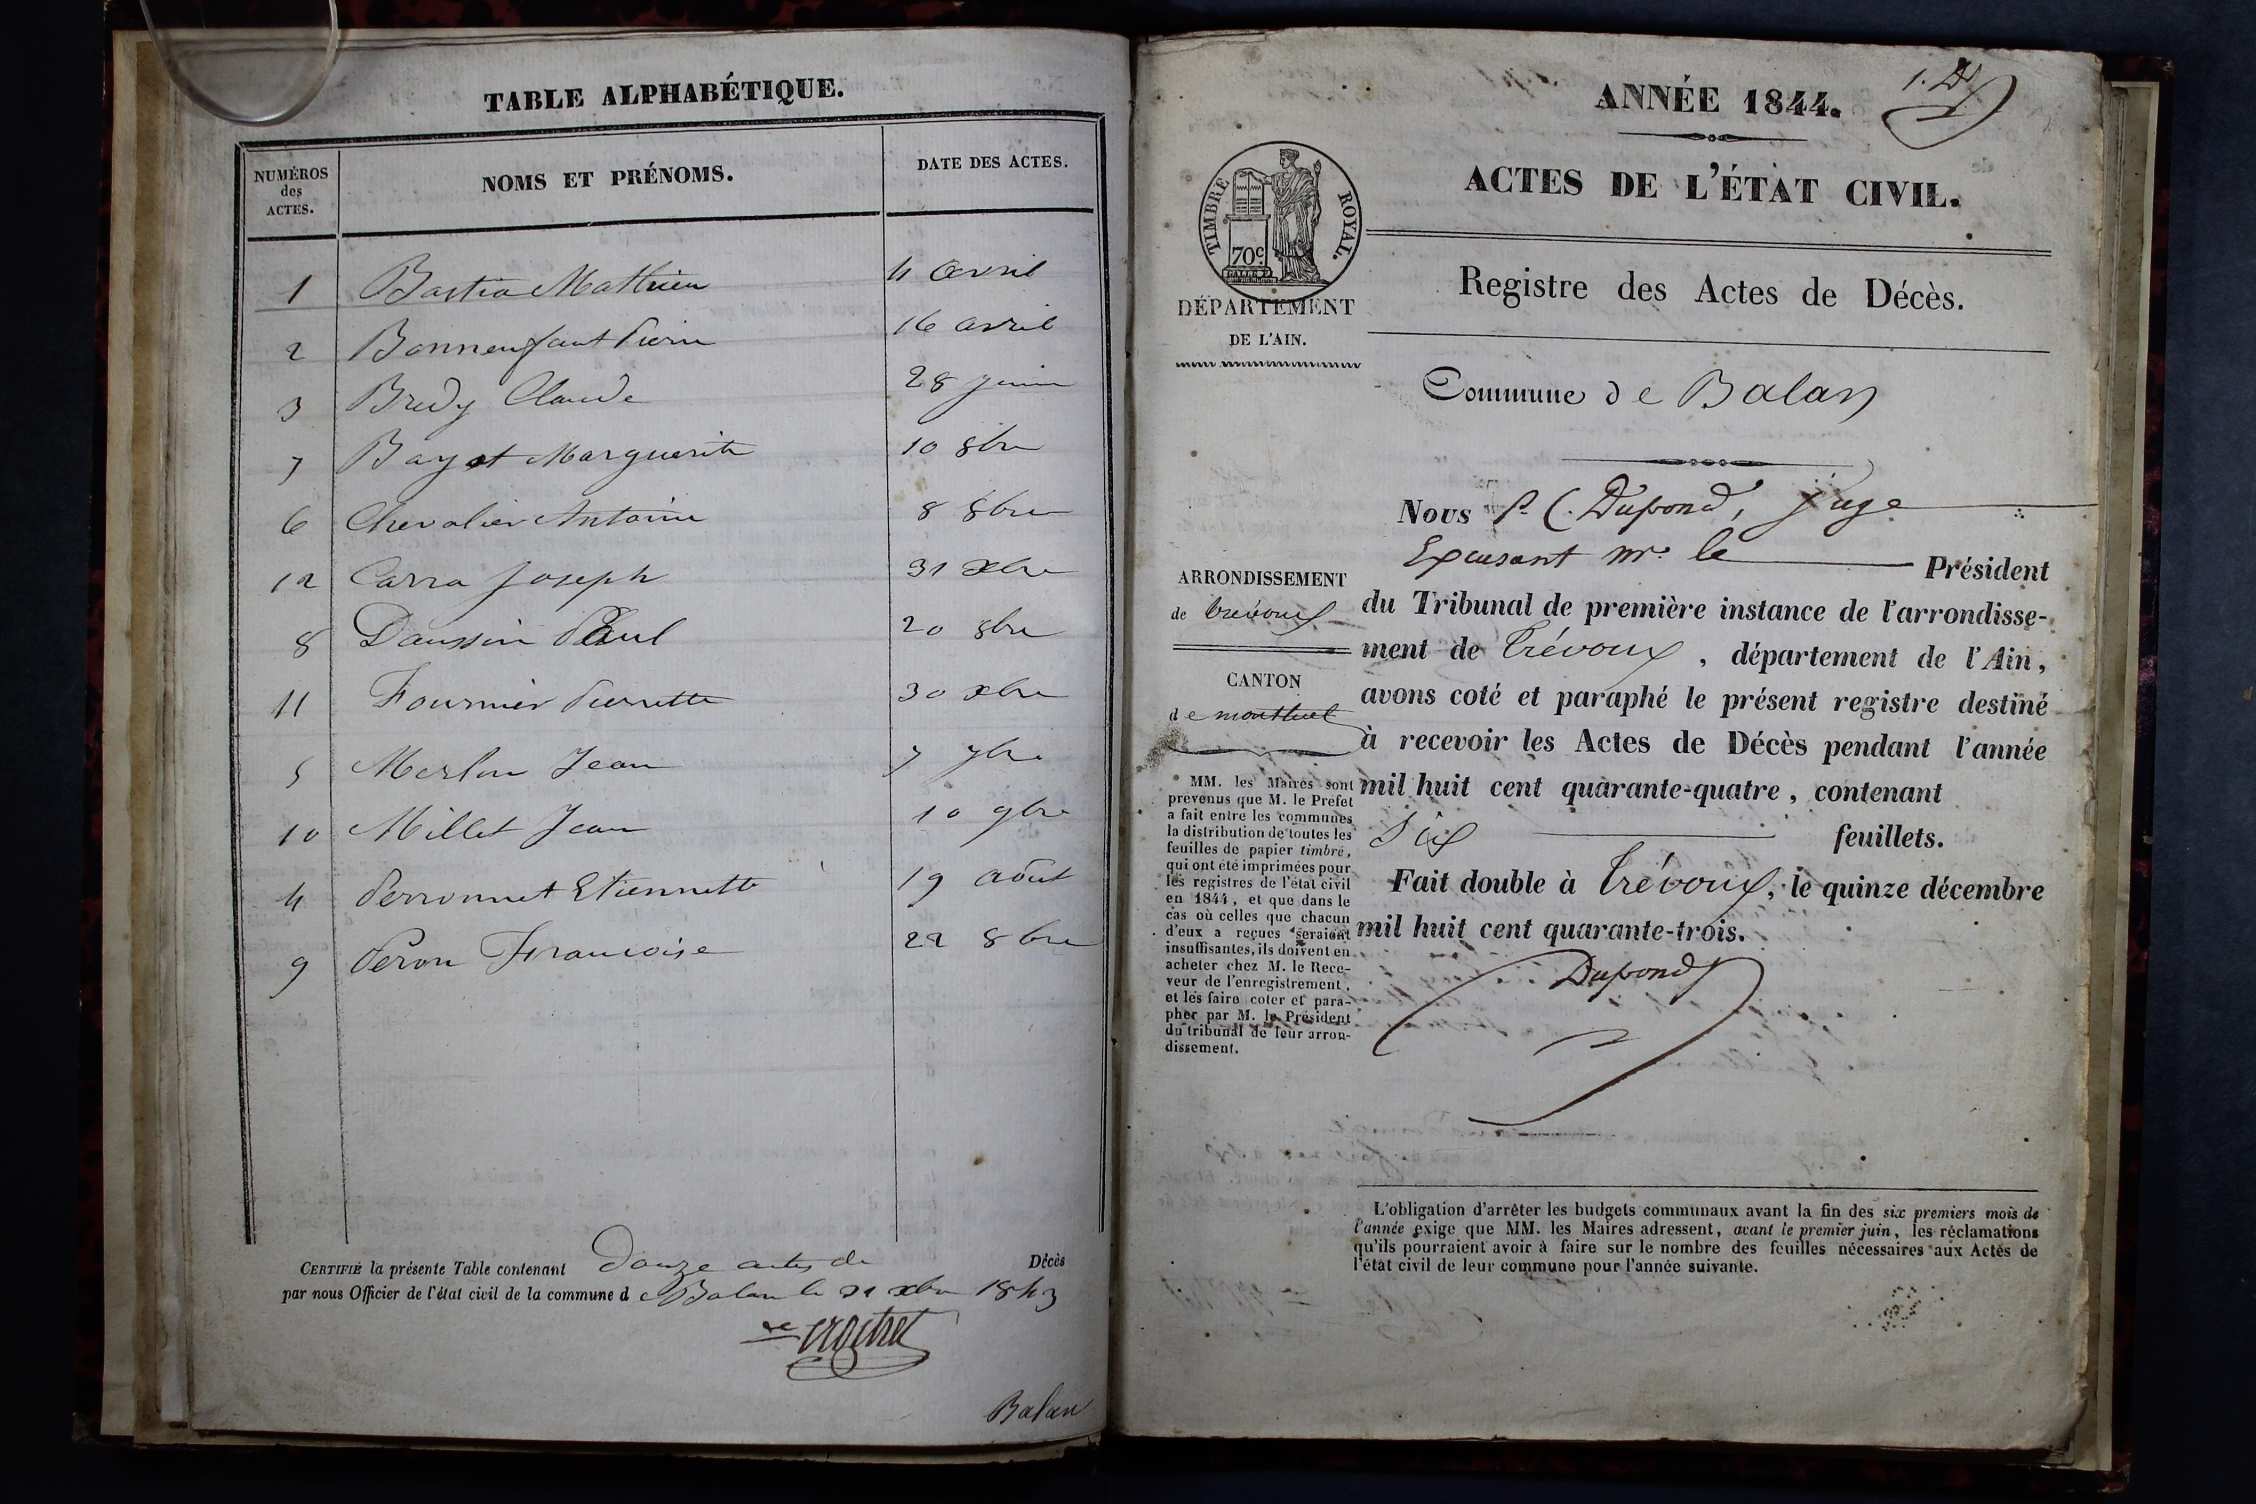 TABLE ALPHABÉTIQUE.
NUMÉROS des ACTES. NOMS ET PRÉNOMS. DATE DES ACTES.
1 Bastia Mathieu 4 avril
2 Bonnenfant Pierre 16 avril
3 Bredy Claude 28 juin
7 Bayet Marguerite 10 8bre
6 Chevalier Antoine 8 8bre
12 Carra Joseph 31 xbre
8 Daussin Paul 20 8bre
11 Fournier Pierrette 30 xbre
5 Merlin Jean 7 7bre
10 Millet Jean 10 9bre
4 Perronnet Etiennette 19 août
9 Péron Francoise 22 8bre
CERTIFIÉ la présente Table contenant Douze actes de Décès
par nous Officier de l'état civil de la commune de Balan le 31 xbre 1843
Balan
ANNÉE 1844.
ACTES DE L'ÉTAT CIVIL.
TIMBRE ROYAL.
70c.
DÉPARTEMENT
DE L'AIN.
Registre des Actes de Décès.
Commune de Balan
Nous P. C. Dupond, Juge
Excusant mr. le Président
ARRONDISSEMENT
de trévoux
CANTON
de montluel
du Tribunal de première instance de l'arrondisse-
ment de Trévoux, département de l'Ain,
avons coté et paraphé le présent registre destiné
à recevoir les Actes de Décès pendant l'année
mil huit cent quarante-quatre, contenant
Six feuillets.
Fait double à Trévoux, le quinze décembre
mil huit cent quarante-trois.
Dupond
MM. les Maires sont
prévenus que M. le Préfet
a fait entre les communes
la distribution de toutes les
feuilles de papier timbré,
qui ont été imprimées pour
les registres de l'état civil
en 1844, et que dans le
cas où celles que chacun
d'eux a reçues seraient
insuffisantes, ils doivent en
acheter chez M. le Rece-
veur de l'enregistrement,
et les faire coter et para-
pher par M. le Président
du tribunal de leur arron-
dissement.
L'obligation d'arrêter les budgets communaux avant la fin des six premiers mois de
l'année exige que MM. les Maires adressent, avant le premier juin, les réclamations
qu'ils pourraient avoir à faire sur le nombre des feuilles nécessaires aux Actes de
l'état civil de leur commune pour l'année suivante.